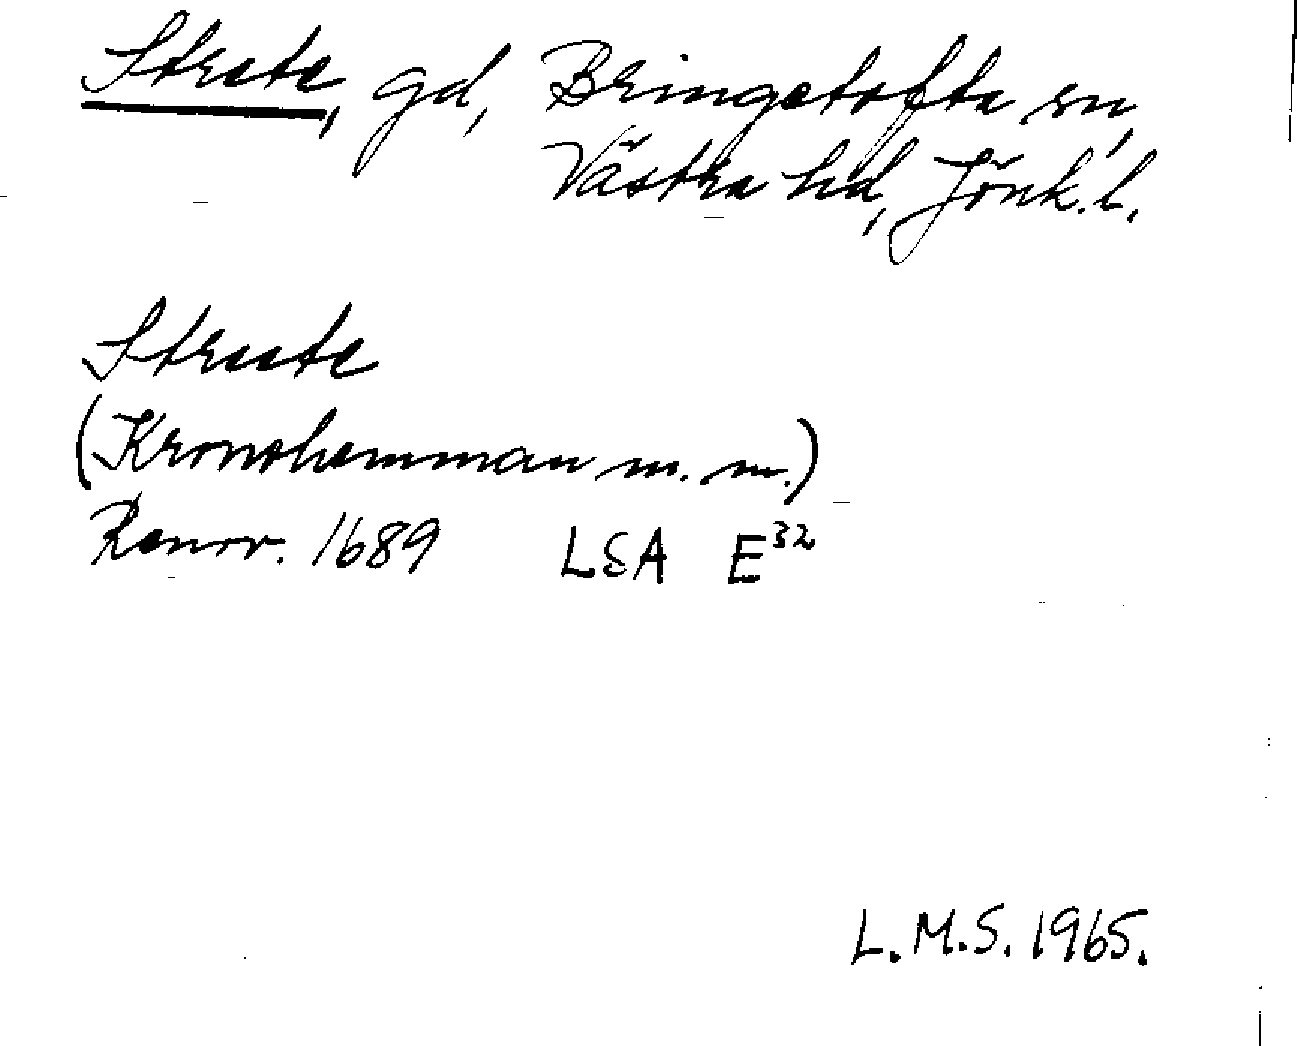 Strate, gd, Bringetofta sn,
Västra hd, Jönk. l.
Straate
(Kronohemman m. m.)
Renov. 1689 LSA E32
L.M.S. 1965.